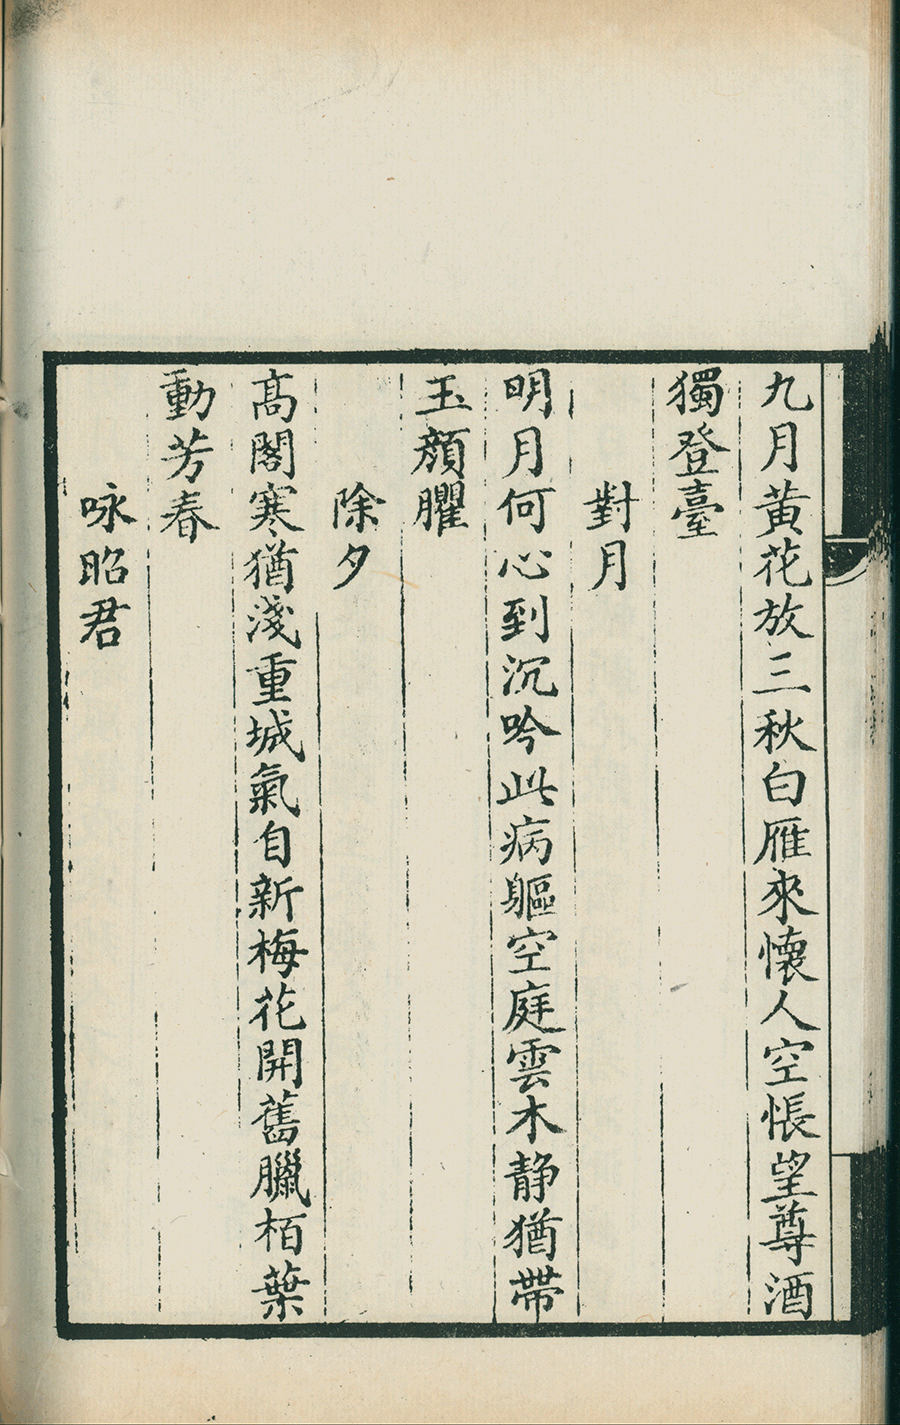 九月黃花放三秋白雁來懷人空悵望尊酒
獨登臺
對月
明月何心到沉吟此病軀空庭雲木静猶帶
玉顔臞
除夕
髙閣寒猶淺重城氣自新梅花開舊臘栢葉
動芳春
咏昭君